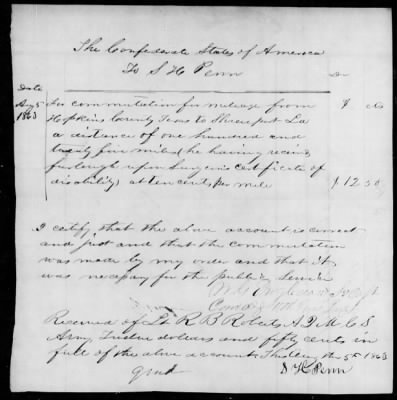 The Confederate States of America
To S H Penn Dr
Date
Aug 5 For commutation for mileage from $ cts
1863 Hopkins County Texas to Shreveport La
a distance of one hundred and
twenty five miles (he having received
furlough upon Surgeon's Certificate of
disability) at ten cents per mile $12 50
I certify that the above account is correct
and just and that the commutation
was made by my order and that it
was necessary for the public Service
Comdg
Received of Lt R B Roberts A Q M C S
Army, Twelve dollars and fifty cents in
full of the above account this Aug the 5th 1863
S H Penn